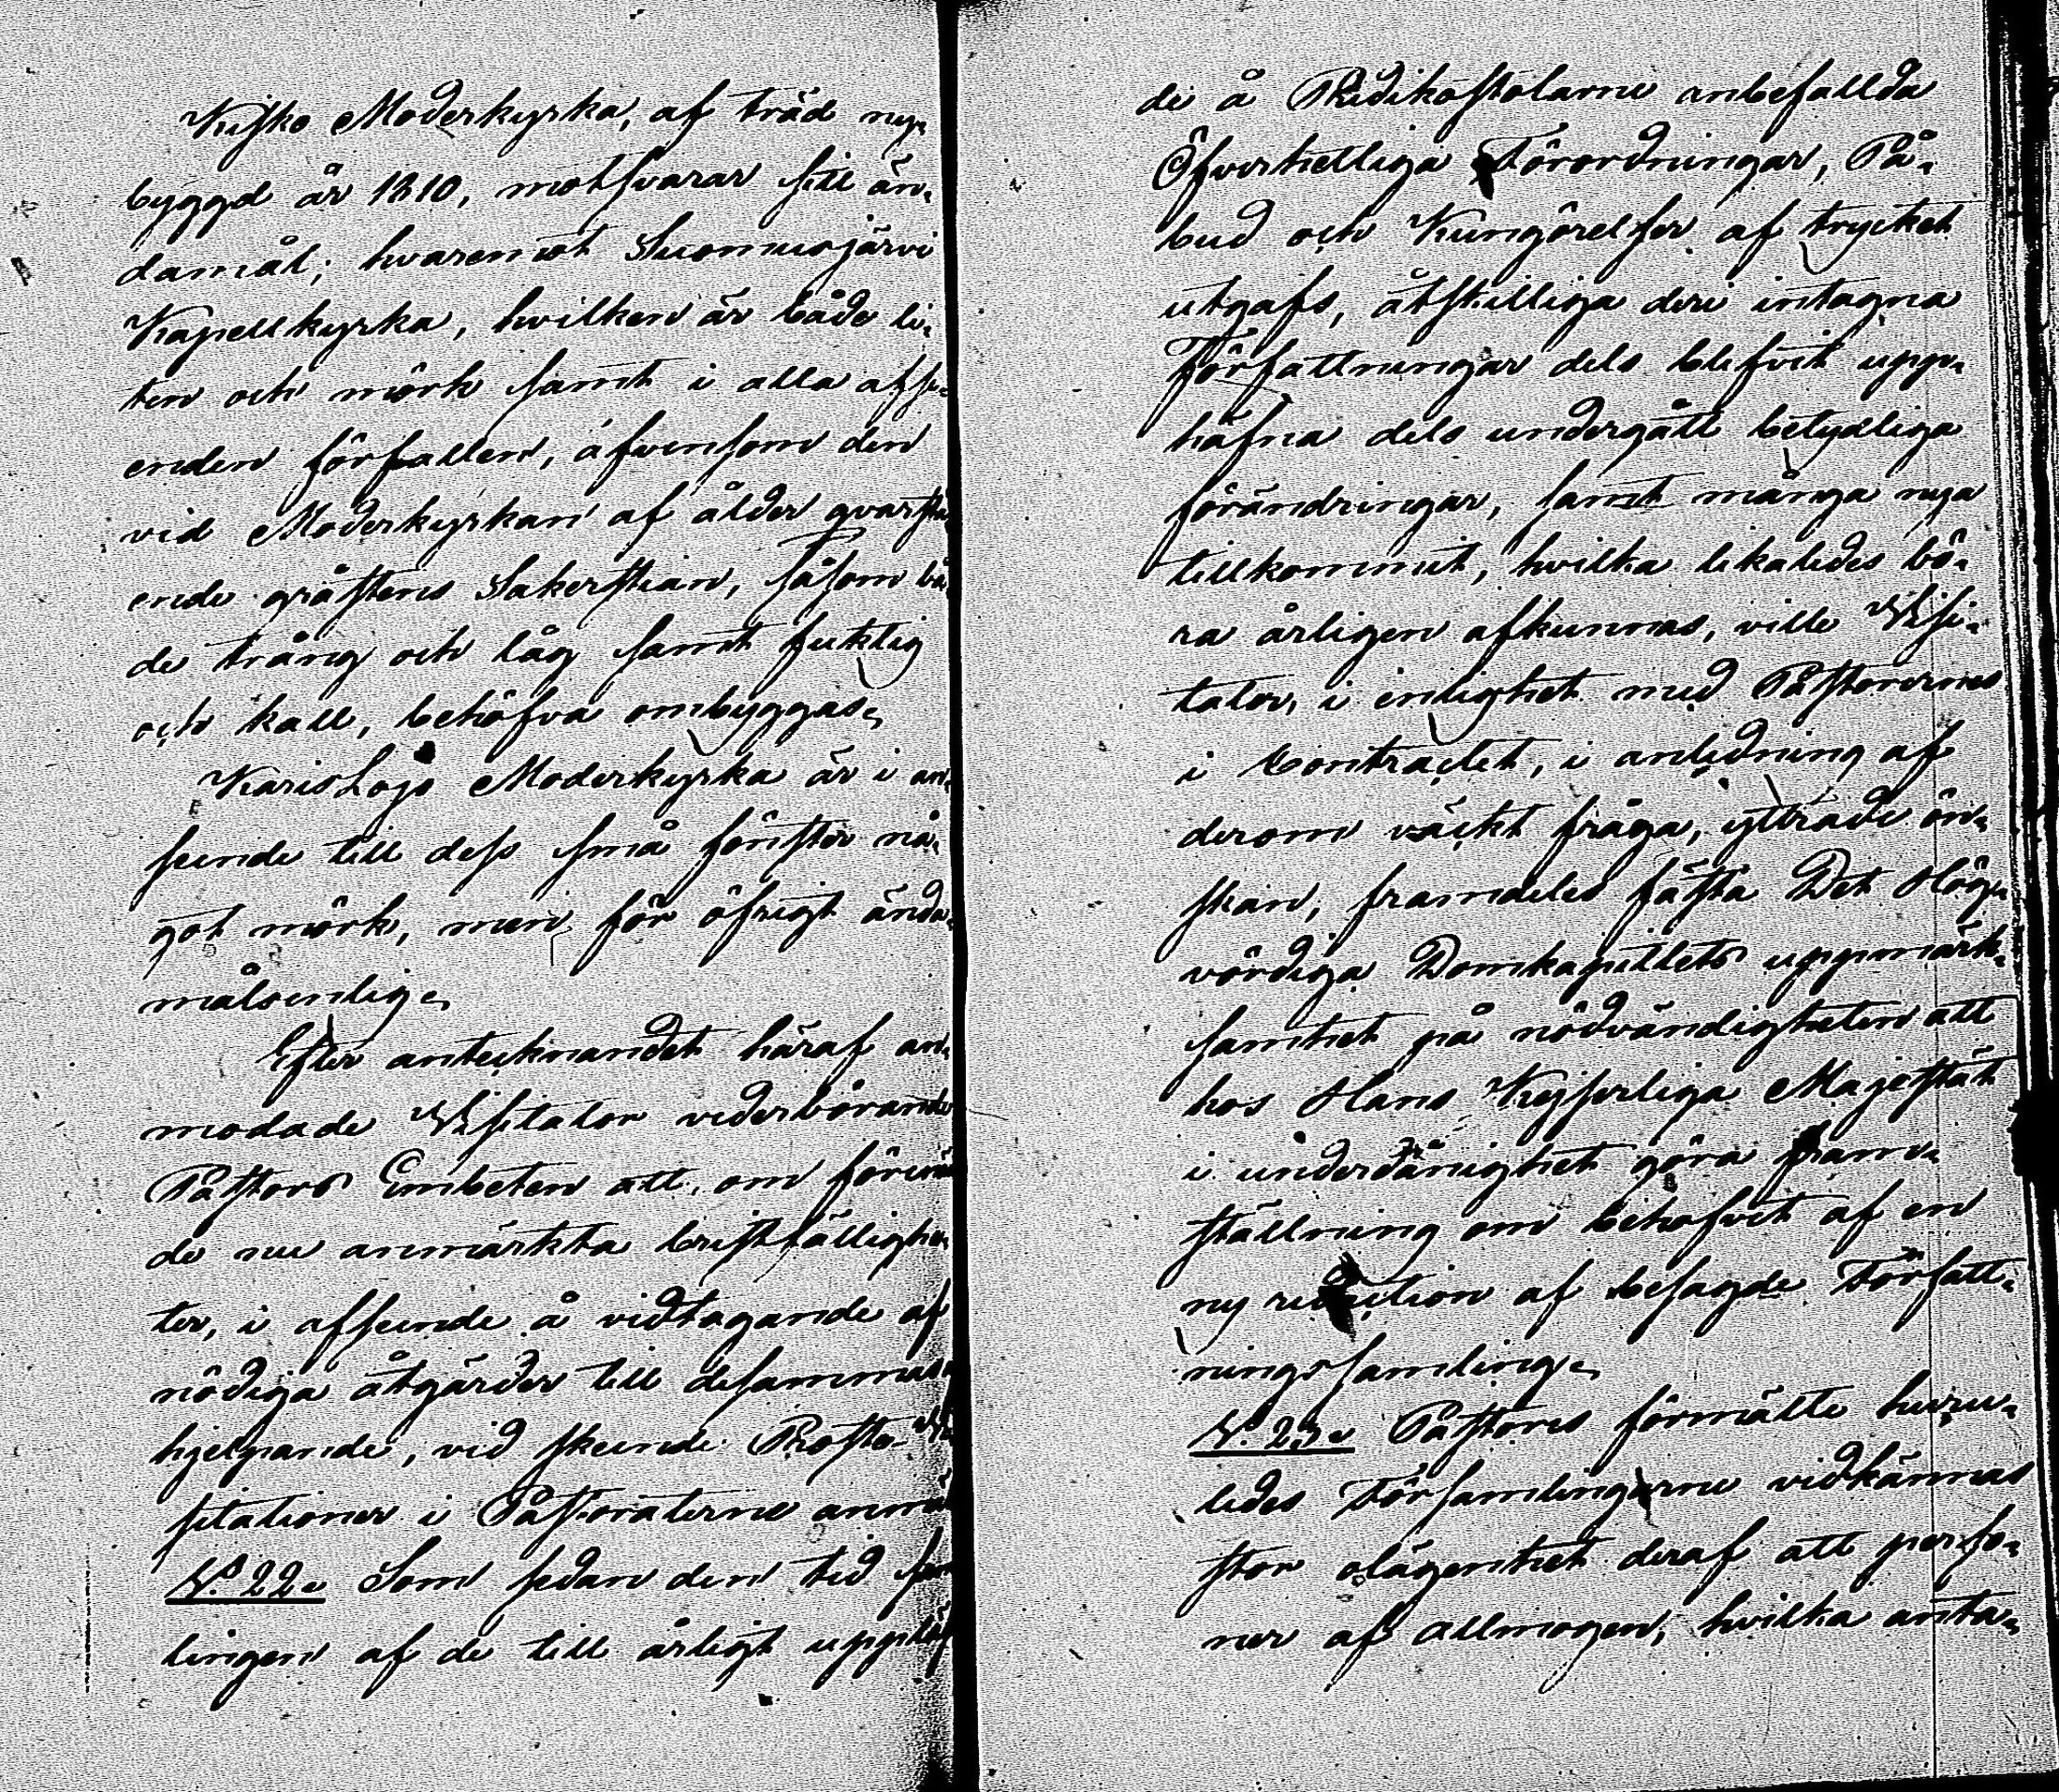 Kisko Moderkyrka, af träd ny-
byggd år 1810, motsvarar sitt än-
damål; hvaremot Suomusjärvi
Kapellkyrka, hvilken är både li-
ten och mörk samt i alla afse-
enden förfallen, äfvensom den
vid Moderkyrkan af ålder qvarstå
ende gråstens Sakerstian, såsom bå
de trång och låg samt fuktig
och kall, behöfva ombyggas.
KarisLojo Moderkyrka är i an-
seende till dess små fönster nå-
got mörk, men för öfrigt ända-
målsenlig.
Efter antecknandet häraf an-
modade Visitator vederbörande
Pastors Embeten att, om förenäm
de nu anmärkta bristfällighe-
ter, i afseende å vidtagande af
nödiga åtgärder till desammas
hjelpande, vid skeende Prosts-Vi
sitationer i Pastoraterne anmä
N:o 22. Som sedan den tid sam
lingen af de till årligt upplä
de å Predikostolarne anbefallda
Öfverhetliga Förordningar, På-
bud och Kungörelser af trycket
utgafs, åtskilliga deri intagna
Författningar dels blifvit upp-
häfna dels undergått betydliga
förändringar, samt många nya
tillkommit, hvilka likaledes bö-
ra årligen afkunnas, ville Visi-
tator, i enlighet med Pastorernes
i Contractet, i anledning af
derom väckt fråga, yttrade ön-
skan, framdeles fästa Det Hög-
vördiga Domkapitlets uppmärk-
samhet på nödvändigheten att
hos Hans Kejserliga Majestät
i underdånighet göra fram-
ställning om behofvet af en
ny redaction af besagde Författ-
ningssamling.
N:o 23. Pastores förmälte huru-
ledes Församlingarne vidkännas
stor olägenhet deraf att perso-
ner af allmogen, hvilka anta-